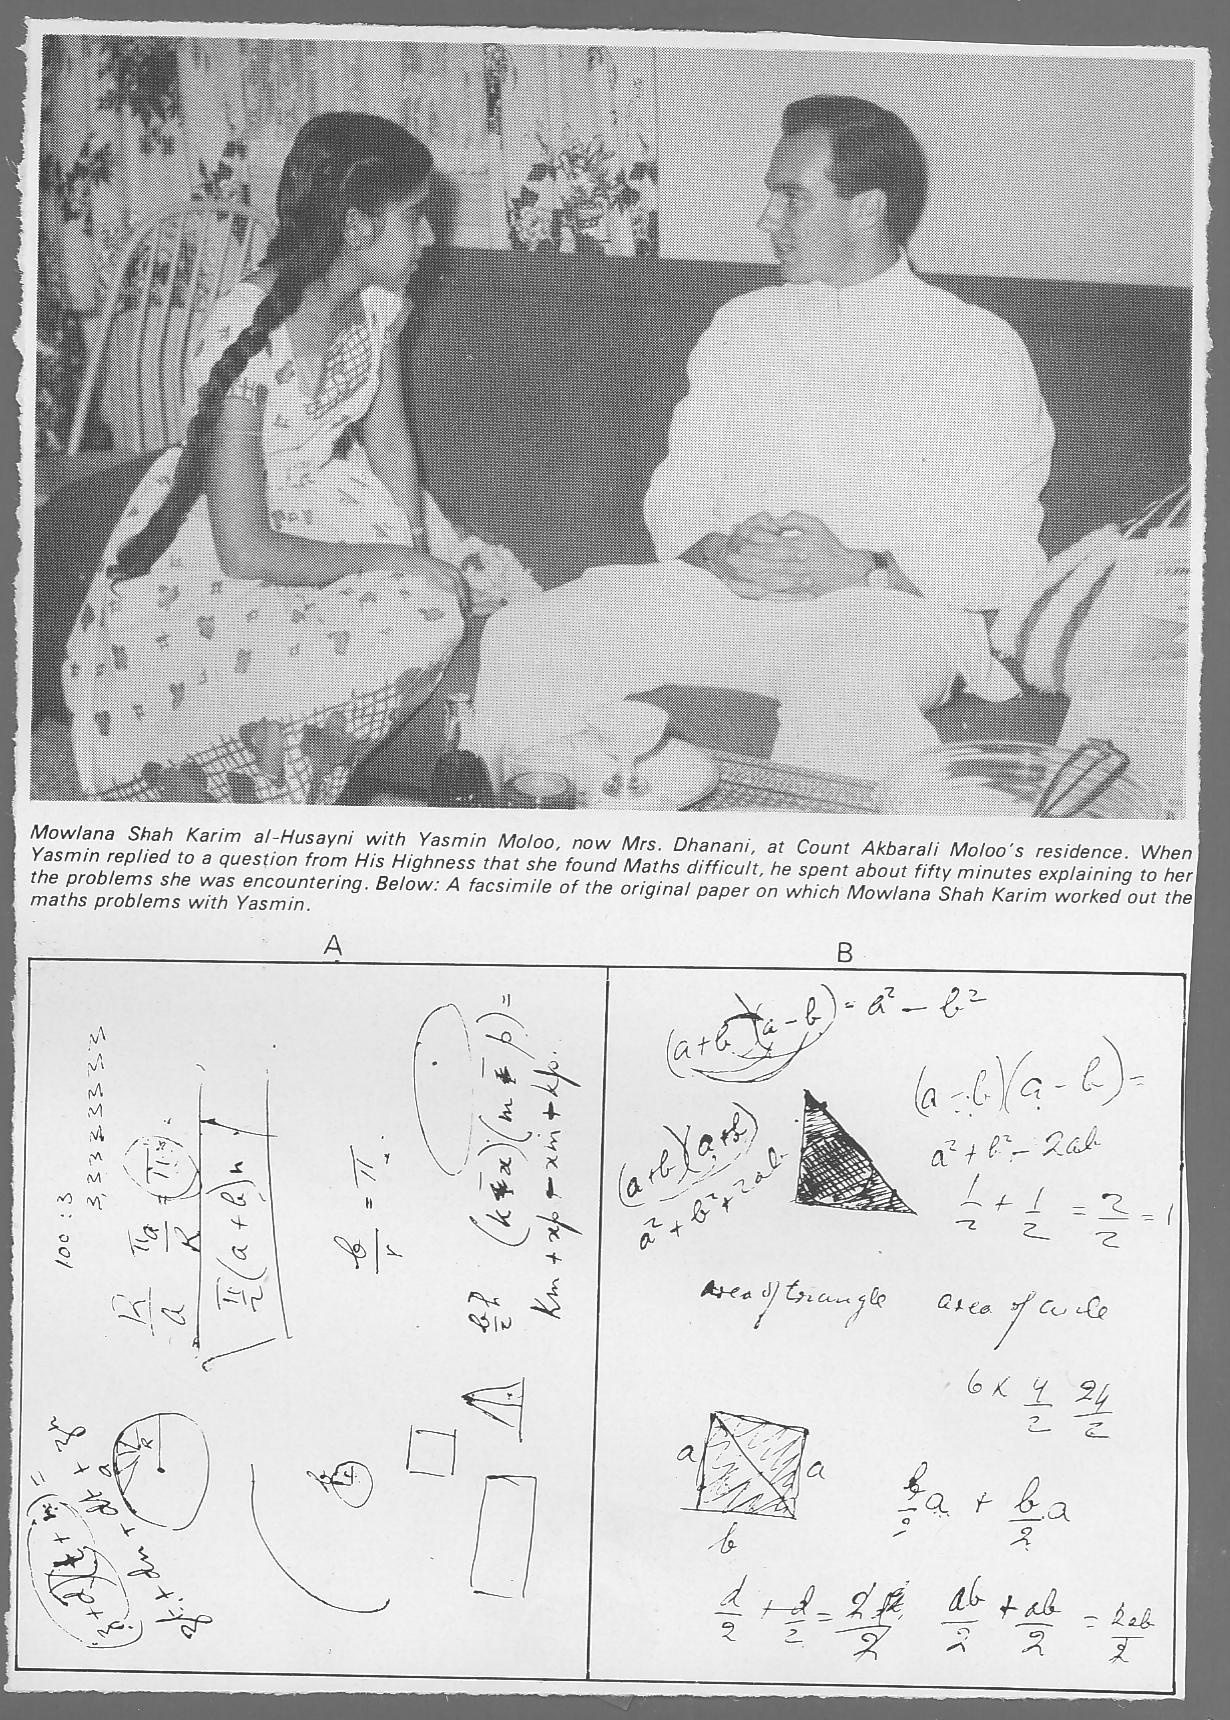 Mowlana Shah Karim al-Husayni with Yasmin Moloo, now Mrs. Dhanani, at Count Akbarali Moloo's residence. When
Yasmin replied to a question from His Highness that she found Maths difficult, he spent about fifty minutes explaining to her
the problems she was encountering. Below: A facsimile of the original paper on which Mowlana Shah Karim worked out the
maths problems with Yasmin.
A
100:3
33333333
R/a
πa/R
π/2 (a+b)h
b/r = π
bh/2
(k-x)(m-p)=
km + xp - xm + kp.
B
(a+b)(a-b) = a² - b²
(a-b)(a-b)=
a²+b²-2ab
(a+b)(a+b)
a²+b²+2ab
1/2 + 1/2 = 2/2 = 1
area of triangle area of circle
6 x 4/2 24/2
a a
b
b/2 a + b/2 a
d/2 + d/2 =
ab/2 + ab/2 = 2ab/2